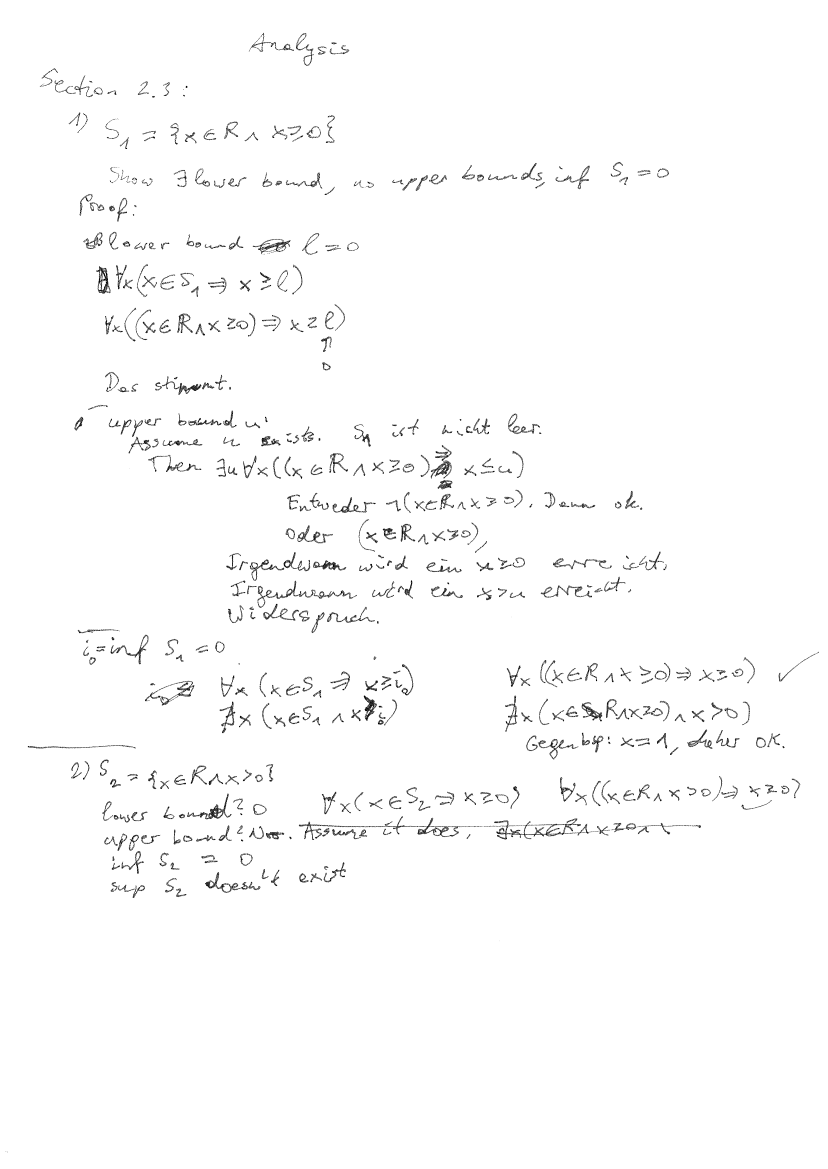 Analysis
Section 2.3:
1) S₁ = {x∈ℝ ∧ x≥0}
Show ∃ lower bound, no upper bounds, inf S₁ = 0
Proof:
lower bound l = 0
∀x(x∈S₁ ⇒ x≥l)
∀x((x∈ℝ∧x≥0) ⇒ x≥l)
⇑
0
Das stimmt.
upper bound u:
Assume u exists. S₁ ist nicht leer.
Then ∃u∀x((x∈ℝ∧x≥0) ⇒ x≤u)
Entweder ¬(x∈ℝ∧x≥0). Dann ok.
Oder (x∈ℝ∧x≥0),
Irgendwann wird ein x≥0 erreicht,
Irgendwann wird ein x>u erreicht.
Widerspruch.
i₀=inf S₁ = 0
∀x (x∈S₁ ⇒ x≥i₀) ∀x ((x∈ℝ∧x≥0) ⇒ x≥0) ✓
∄x (x∈S₁ ∧ x>i₀) ∄x (x∈ℝ∧x≥0) ∧ x>0)
Gegenbsp: x=1, daher OK.
2) S₂ = {x∈ℝ∧x>0}
lower bound? 0 ∀x(x∈S₂ ⇒ x≥0) ∀x((x∈ℝ∧x>0) ⇒ x≥0)
upper bound? No. Assume it does, ∃x(x∈ℝ∧x≥0∧
inf S₂ = 0
sup S₂ doesn't exist